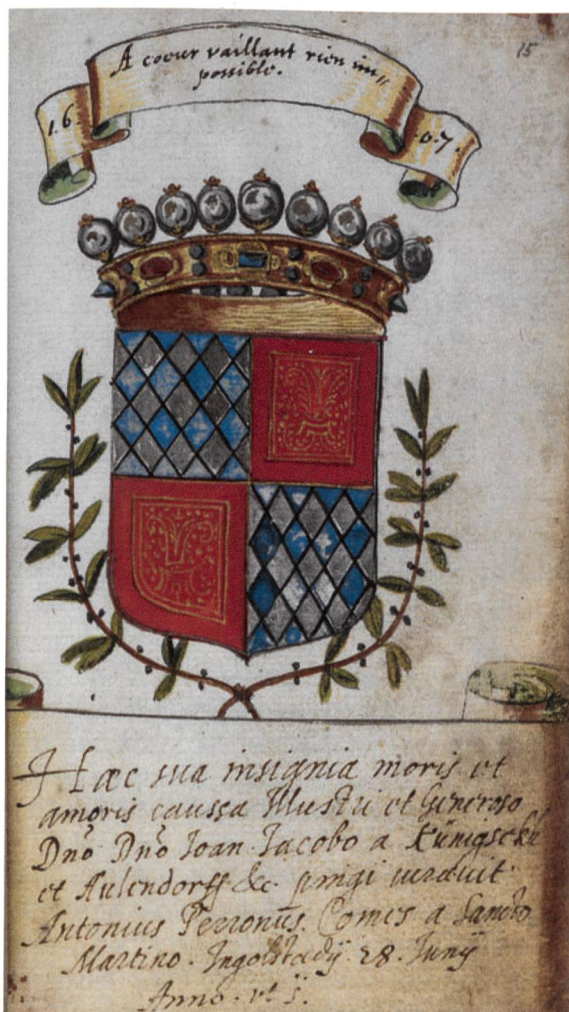 15
A coeur vaillant rien im„
possible.
1.6. .0.7.
Hæc sua insignia moris et
amoris caussa Illustri et Generoso
Dnō Dnō Ioan. Iacobo a
et Aulendorff &c. pingi curavit
Antonius Perronus. Comes a Sancto
Martino. Ingolstadij 28. Junij
Anno. vt s.